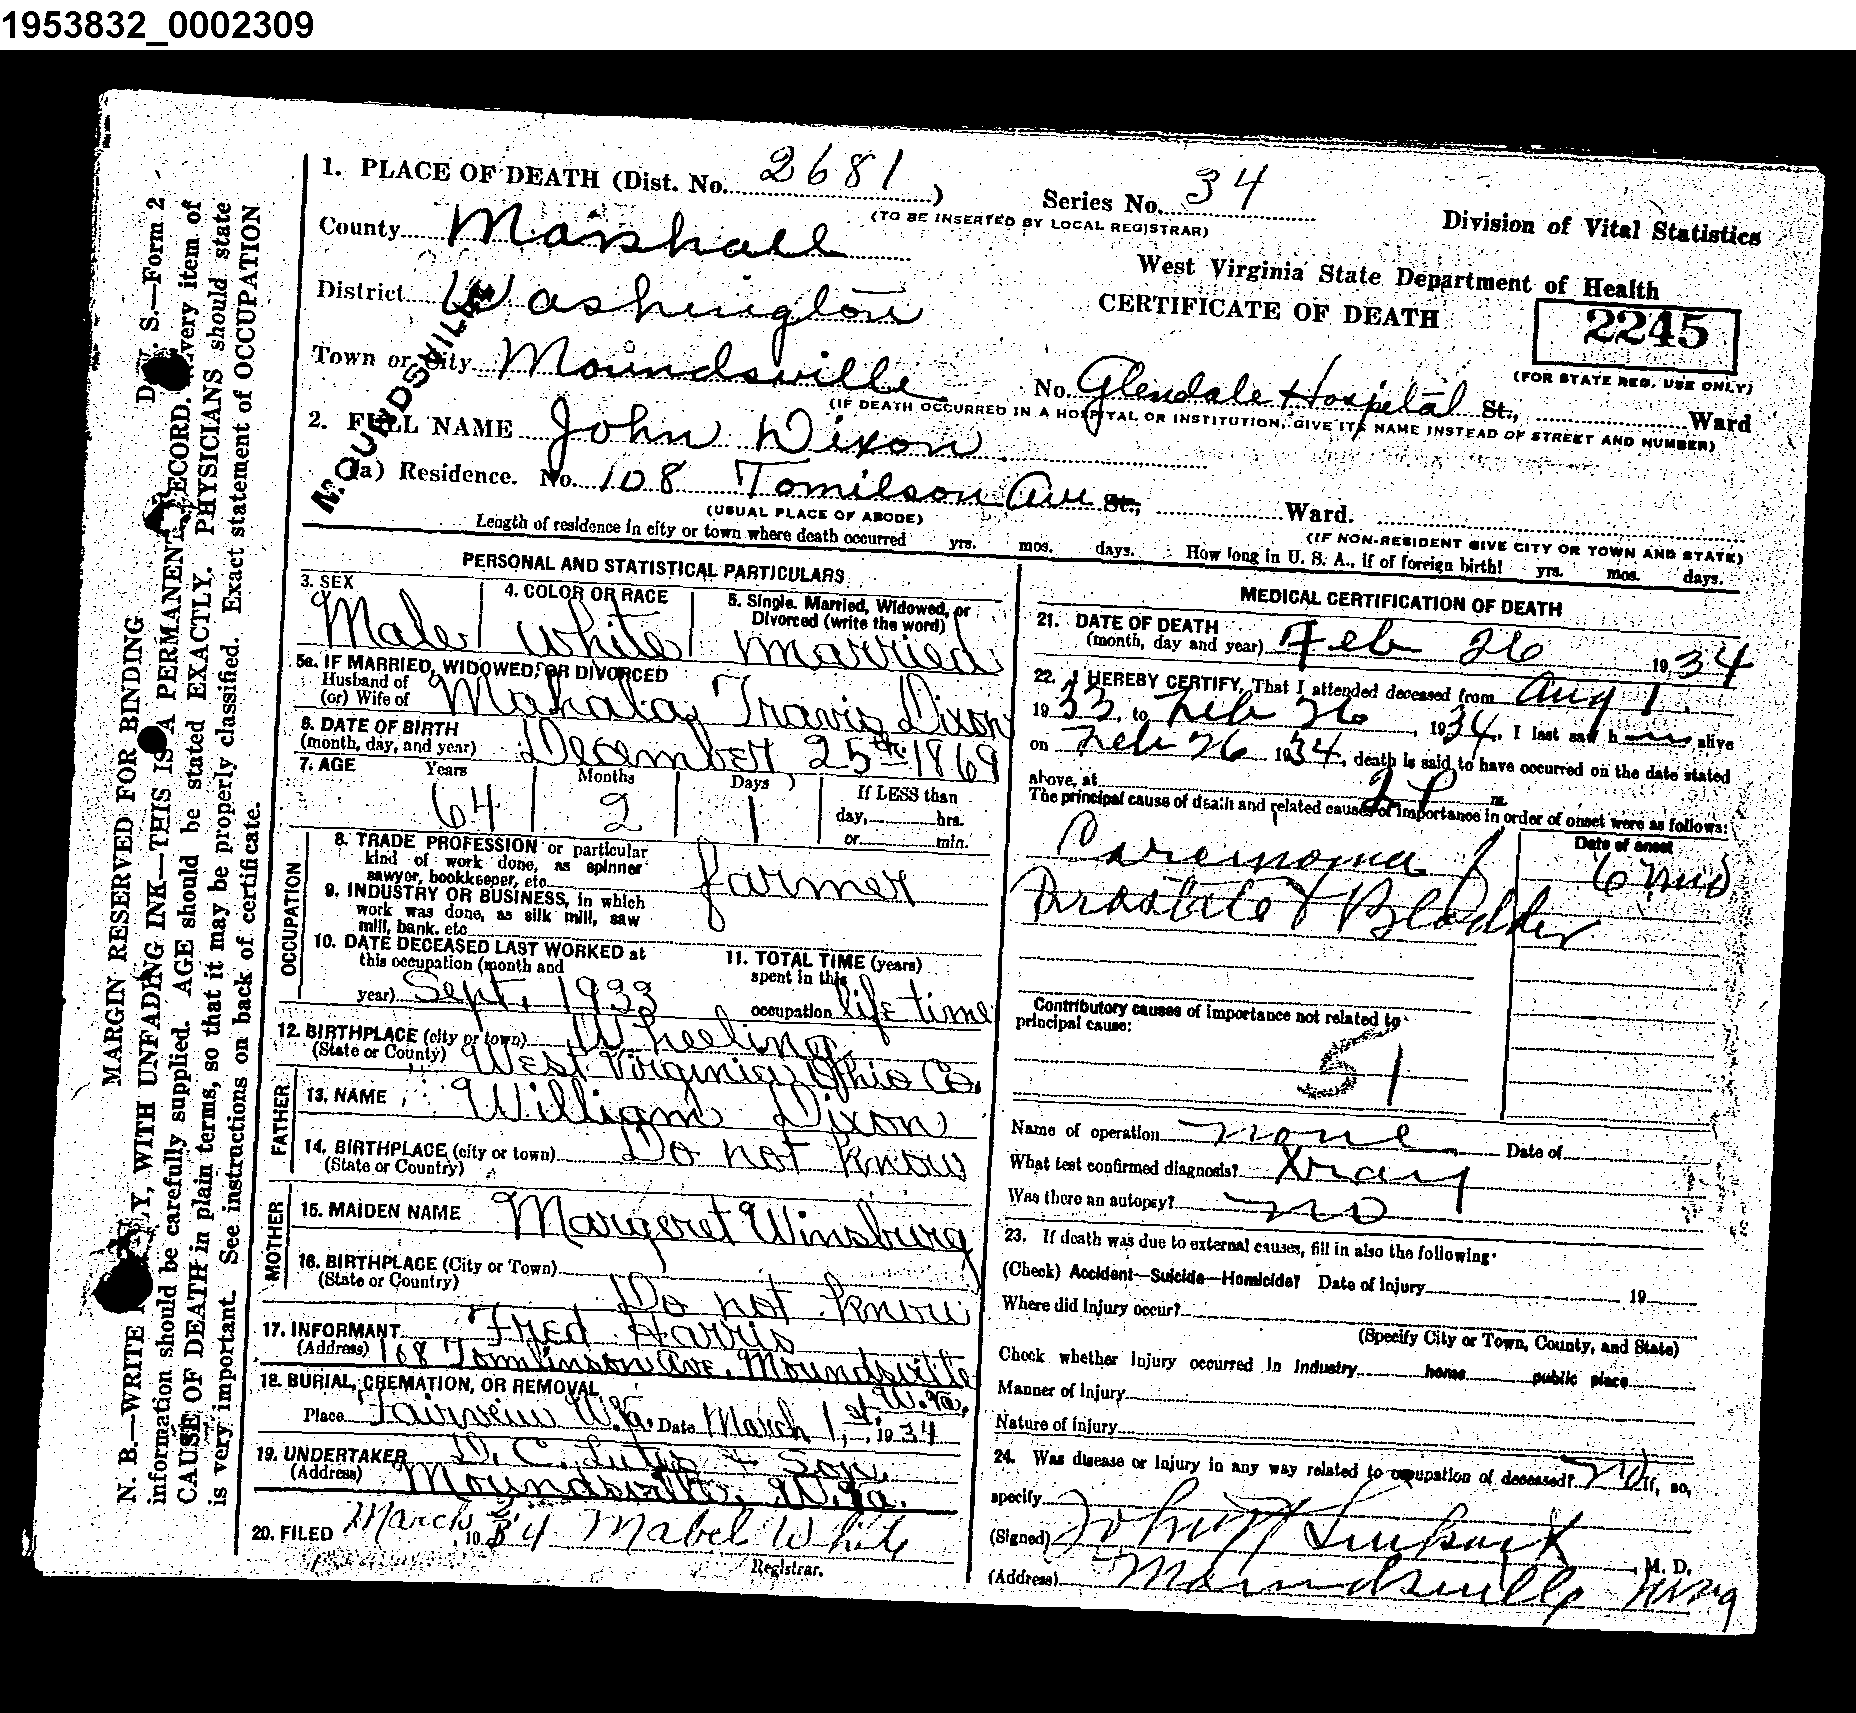 1953832_0002309
1. PLACE OF DEATH (Dist. No. 2681 )
Series No. 34
(TO BE INSERTED BY LOCAL REGISTRAR)
Division of Vital Statistics
West Virginia State Department of Health
CERTIFICATE OF DEATH
2245
(FOR STATE REG. USE ONLY)
County Marshall
District Washington
Town or City Moundsville
MOUNDSVILLE
No. Glendale Hospital St., Ward
(IF DEATH OCCURRED IN A HOSPITAL OR INSTITUTION, GIVE ITS NAME INSTEAD OF STREET AND NUMBER)
2. FULL NAME John Dixon
(a) Residence. No. 108 Tomilson Ave St., Ward.
(USUAL PLACE OF ABODE)
(IF NON-RESIDENT GIVE CITY OR TOWN AND STATE)
Length of residence in city or town where death occurred yrs. mos. days. How long in U. S. A., if of foreign birth? yrs. mos. days.
PERSONAL AND STATISTICAL PARTICULARS
3. SEX
Male
4. COLOR OR RACE
White
5. Single, Married, Widowed, or
Divorced (write the word)
Married
5a. IF MARRIED, WIDOWED, OR DIVORCED
Husband of
(or) Wife of Mahala Travis Dixon
6. DATE OF BIRTH
(month, day, and year) December, 25th 1869
7. AGE Years Months Days If LESS than
64 2 1 day, hrs.
or min.
OCCUPATION
8. TRADE PROFESSION or particular
kind of work done, as spinner
sawyer, bookkeeper, etc.
farmer
9. INDUSTRY OR BUSINESS, in which
work was done, as silk mill, saw
mill, bank, etc
10. DATE DECEASED LAST WORKED at
this occupation (month and
year) Sept, 1933
11. TOTAL TIME (years)
spent in this
occupation life time
12. BIRTHPLACE (city or town) Wheeling
(State or County) West Virginia, Ohio Co.
FATHER
13. NAME William Dixon
14. BIRTHPLACE (city or town) Do not know
(State or Country)
MOTHER
15. MAIDEN NAME Margeret Winsburg
16. BIRTHPLACE (City or Town)
(State or Country) Do not know
17. INFORMANT Fred Harris
(Address) 108 Tomlinson Ave, Moundsville
W.Va.
18. BURIAL, CREMATION, OR REMOVAL
Place Fairview W.Va. Date March 1, st. 1934
19. UNDERTAKER D. C. Lutes & Son,
(Address) Moundsville, W.Va.
20. FILED March 1934 Mabel White
Registrar.
MEDICAL CERTIFICATION OF DEATH
21. DATE OF DEATH
(month, day and year) Feb 26 19 34
22. I HEREBY CERTIFY, That I attended deceased from Aug 1
1933, to Feb 26, 1934, I last saw him alive
on Feb 26 1934, death is said to have occurred on the date stated
above, at 2 P m.
The principal cause of death and related causes of importance in order of onset were as follows:
Date of onset
Carcinoma of 6 mo
Prostate & Bladder
Contributory causes of importance not related to
principal cause:
51
Name of operation none Date of
What test confirmed diagnosis? Xray
Was there an autopsy? no
23. If death was due to external causes, fill in also the following:
(Check) Accident—Suicide—Homicide? Date of Injury 19
Where did injury occur?
(Specify City or Town, County, and State)
Check whether injury occurred in industry home public place
Manner of injury
Nature of injury
24. Was disease or injury in any way related to occupation of deceased? No If, so,
specify
(Signed) M. D.
(Address) Moundsville W Va
MARGIN RESERVED FOR BINDING
N. B.—WRITE WITH UNFADING INK—THIS IS A PERMANENT RECORD. Every item of
information should be carefully supplied. AGE should be stated EXACTLY. PHYSICIANS should state
CAUSE OF DEATH in plain terms, so that it may be properly classified. Exact statement of OCCUPATION
is very important. See instructions on back of certificate.
S.—Form 2